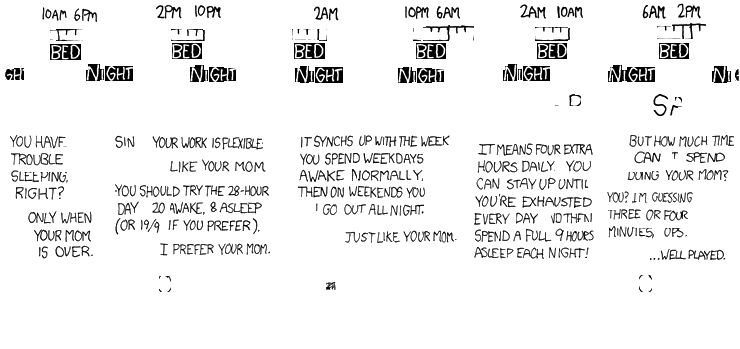 10AM 6PM
2PM 10PM
2AM
10PM 6AM
2AM 10AM
6AM 2PM
BED
BED
BED
BED
BED
NIGHT
NIGHT
NIGHT
NIGHT
NIGHT
YOU HAVE
TROUBLE
SLEEPING,
RIGHT?
ONLY WHEN
YOUR MOM
IS OVER.
YOUR WORK IS FLEXIBLE
LIKE YOUR MOM
YOU SHOULD TRY THE 28-HOUR
DAY 20 AWAKE, 8 ASLEEP
(OR 19/9 IF YOU PREFER).
I PREFER YOUR MOM.
IT SYNCHS UP WITH THE WEEK
YOU SPEND WEEKDAYS
AWAKE NORMALLY,
THEN ON WEEKENDS YOU
GO OUT ALL NIGHT.
JUST LIKE YOUR MOM.
IT MEANS FOUR EXTRA
HOURS DAILY. YOU
CAN STAY UP UNTIL
YOU'RE EXHAUSTED
EVERY DAY
SPEND A FULL 9 HOURS
ASLEEP EACH NIGHT!
BUT HOW MUCH TIME
CAN SPEND
DOING YOUR MOM?
YOU? I'M GUESSING
THREE OR FOUR
MINUTES,
...WELL PLAYED.